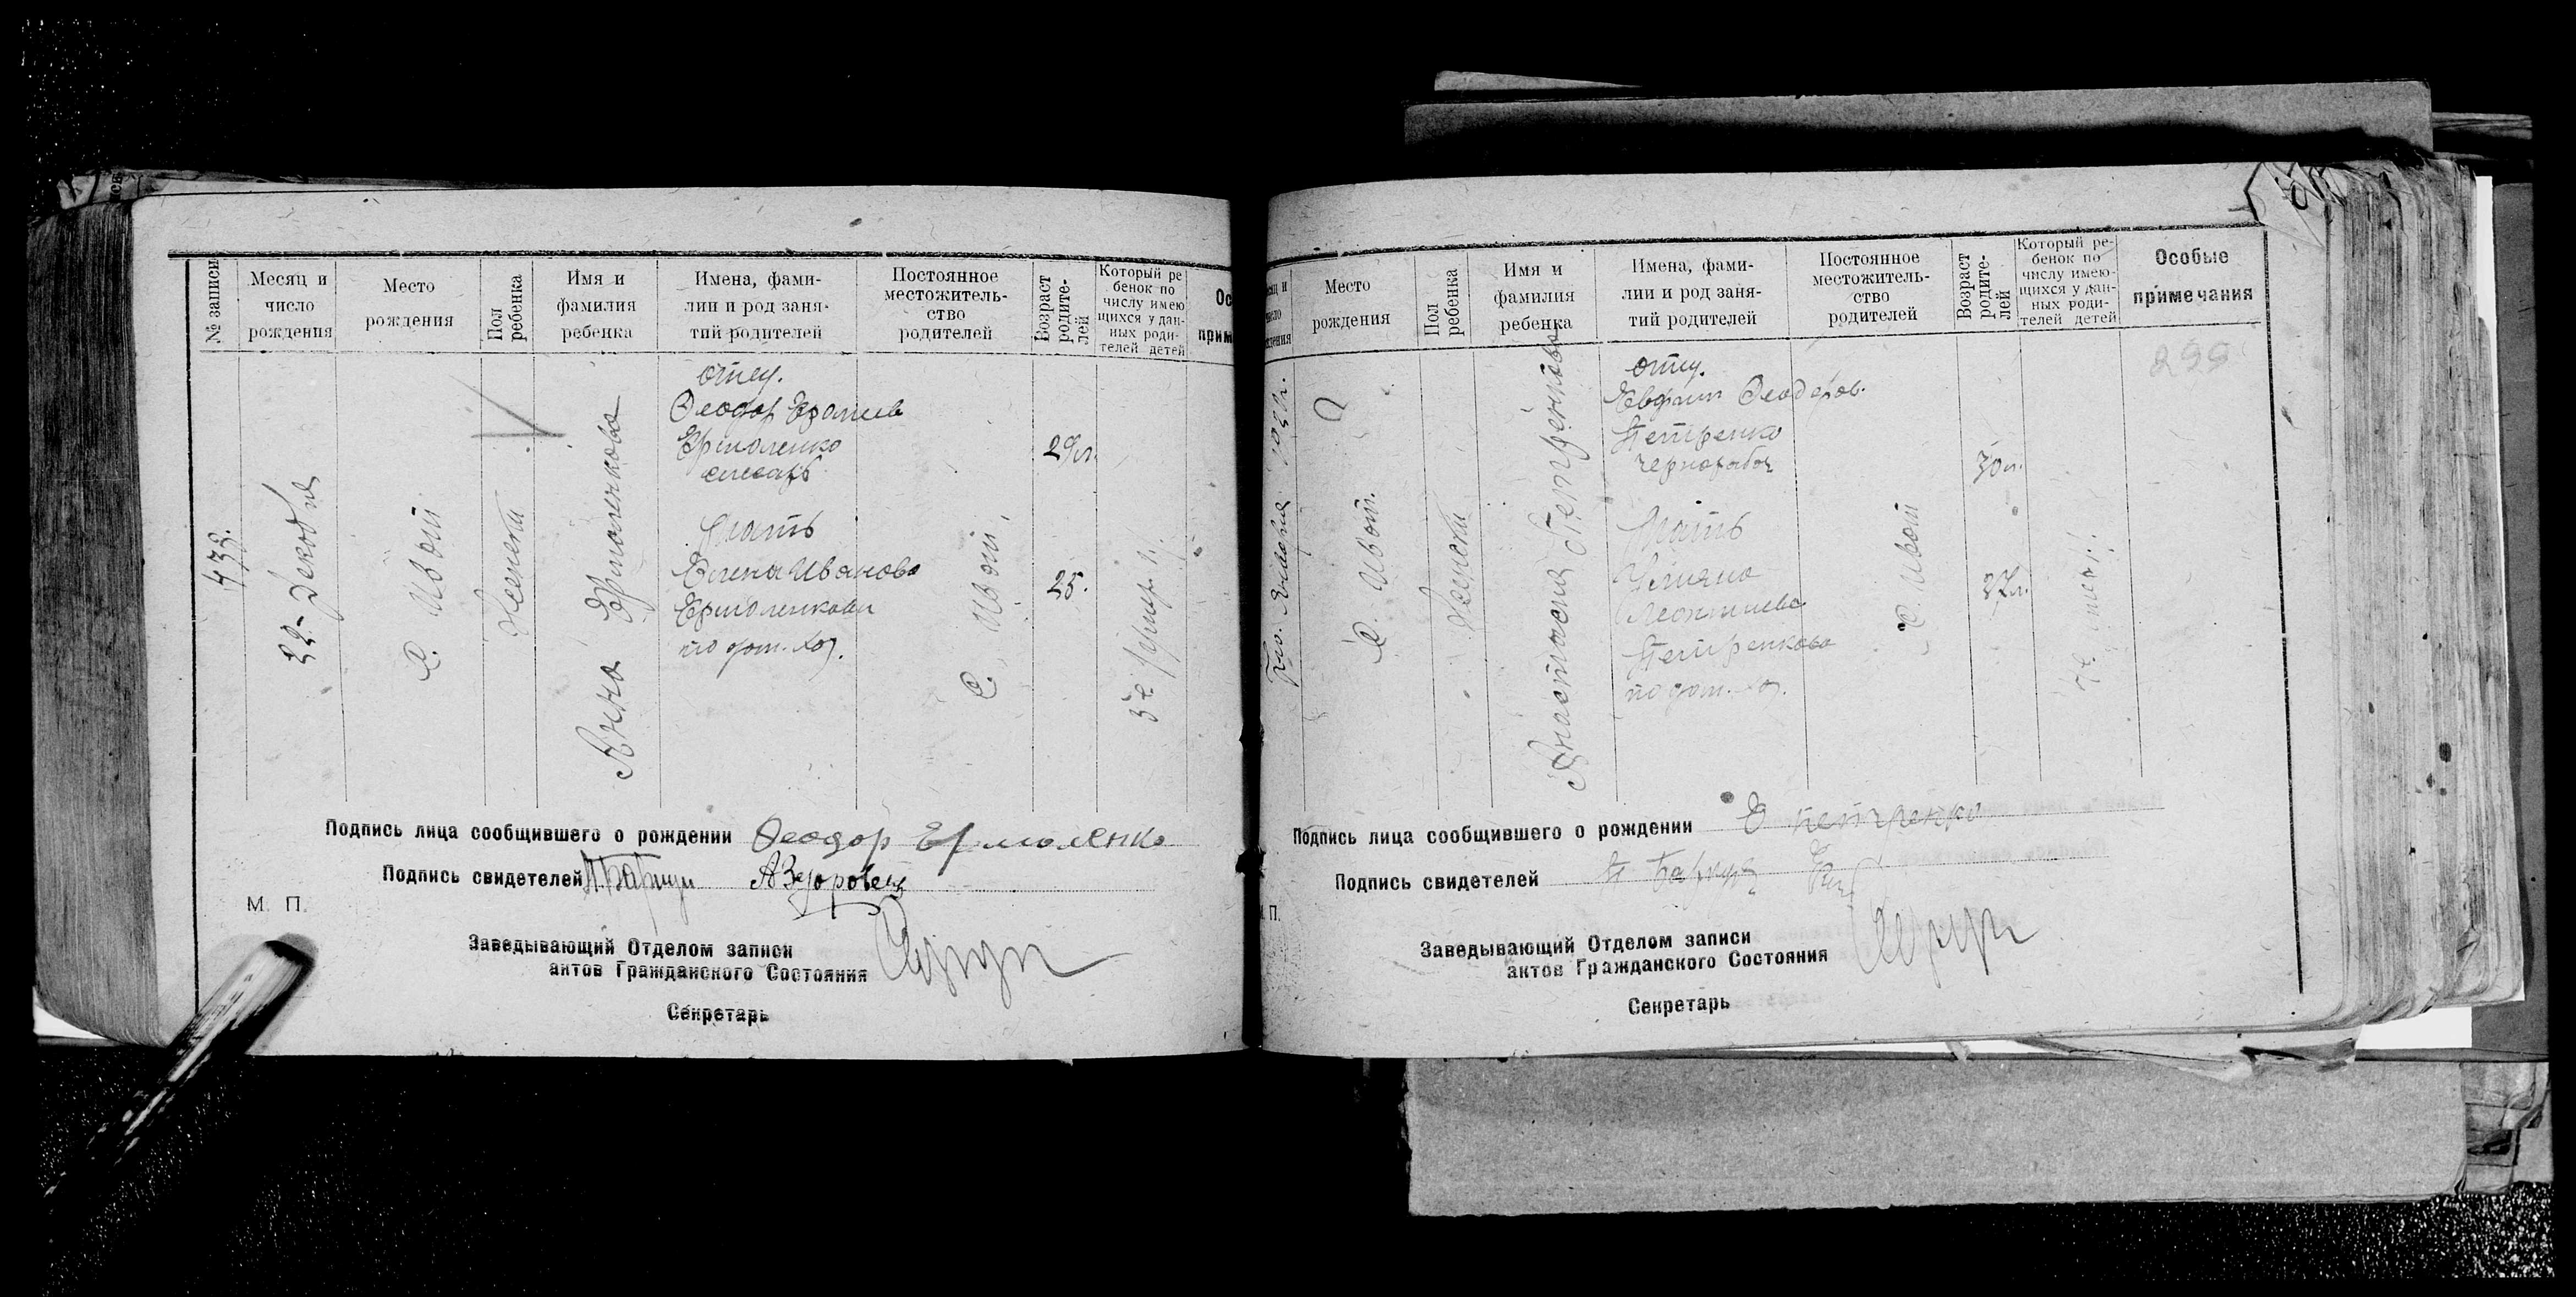 № записи
Месяц и
число
рождения
Место
рождения
Пол
ребенка
Имя и
фамилия
ребенка
Имена, фами-
лии и род заня-
тий родителей
Постоянное
местожитель-
ство
родителей
Возраст
родите-
лей
Который ре
бенок по
числу имею
щихся у дан-
ных роди-
телей детей
Ос
прим
432.
22. Декабря
С. Ивот
Женский
Анна Ермоленкова
отец.
Феодор
Ермоленко
слесарь
Мать
Елена Иванова
Ермоленкова
по дом. хоз.
С. Ивот
29 л.
25.
3й
Подпись лица сообщившего о рождении Феодор Ермоленко
Подпись свидетелей
М. П.
Заведывающий Отделом записи
актов Гражданского Состояния
Секретарь
Место
рождения
Пол
ребенка
Имя и
фамилия
ребенка
Имена, фами-
лии и род заня-
тий родителей
Постоянное
местожитель-
ство
родителей
Возраст
родите-
лей
Который ре-
бенок по
числу имею-
щихся у дан-
ных роди-
телей детей
Особые
примечания
299
Января 1920 г.
С. Ивот.
Женский
Анастасия Петренкова
отец.
Феодоров.
Петренко
чернорабоч
Мать
Леонтиева
Петренкова
по дом. хоз.
С. Ивот
30 л.
27 л.
Подпись лица сообщившего о рождении Е петренко
Подпись свидетелей
П.
Заведывающий Отделом записи
актов Гражданского Состояния
Секретарь